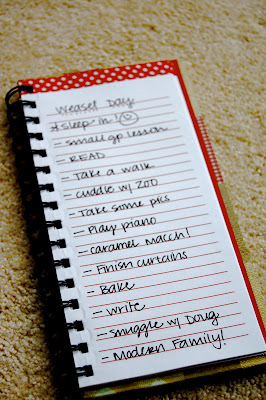 Weasel Day
* Sleep in! ☺
- small go lesson
- READ
- Take a walk
- cuddle w/ ZOO
- Take some pics
- Play piano
- caramel macch!
- Finish curtains
- Bake
- write
- snuggle w/ Doug
- Modern Family!